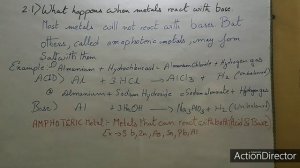 2.1) What happens when metals react with base
Most metals will not react with bases But
others, called amophoteric metals, may form
Salt with them
Example ① Almunium + Hydrochloric acid → Almunium Chloride + Hydrogen gas
ACID) Al + 3 HCl → AlCl3 + H2 (Unbalanced)
② Almunium + Sodium Hydroxide → Sodium aluminate + Hydrogen
Base) Al + NaOH → Na3AlO3 + H2 (Unbalanced)
AMPHOTERIC Metal:- Metals that can react with both Acid & Base
Ex → Sb, Zn, As, Sn, Pb, Al
Recorded with
ActionDirector